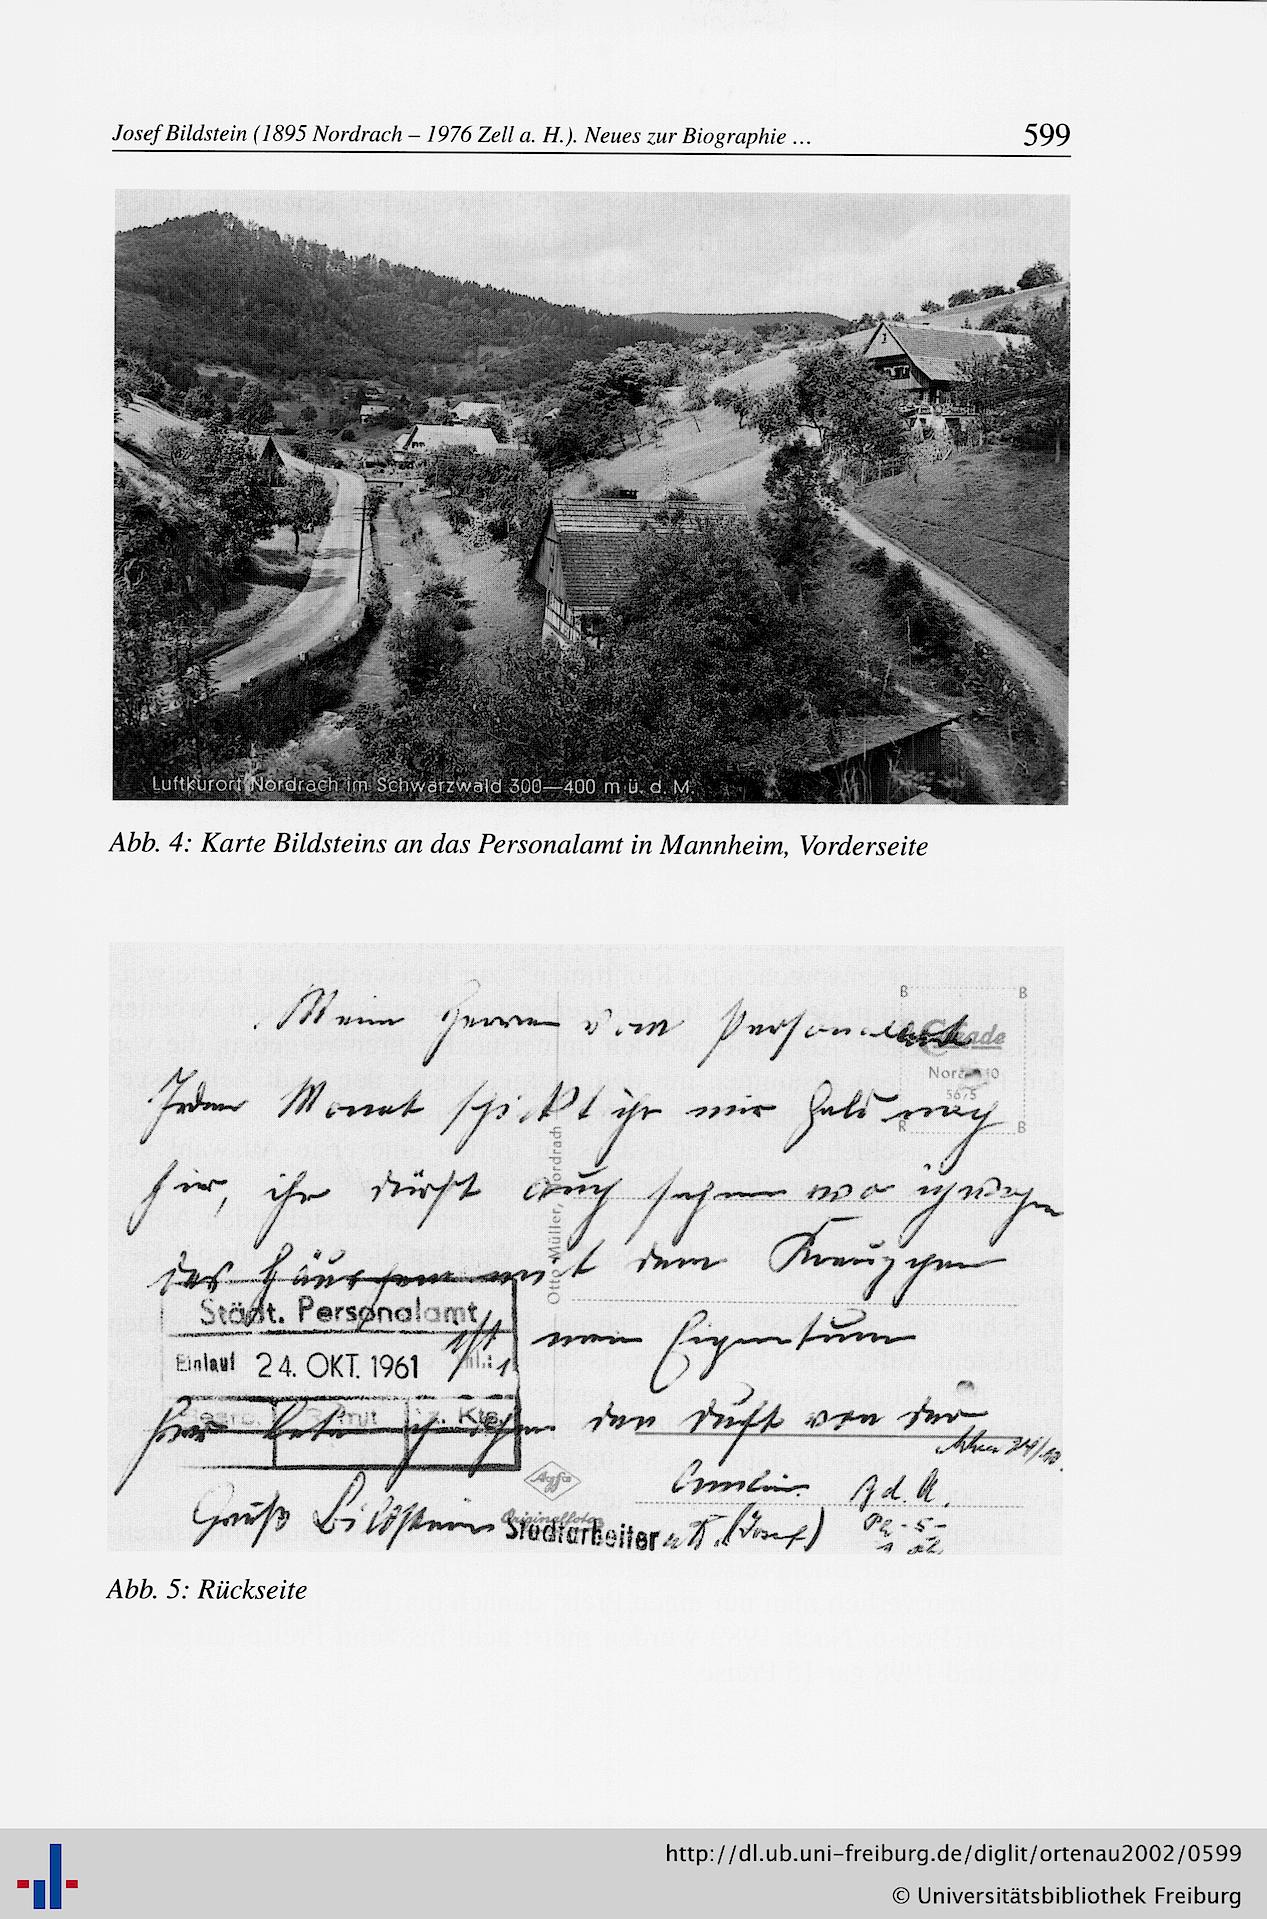 Josef Bildstein (1895 Nordrach – 1976 Zell a. H.). Neues zur Biographie … 599
Luftkurort Nordrach im Schwarzwald 300—400 m ü. d. M.
Abb. 4: Karte Bildsteins an das Personalamt in Mannheim, Vorderseite
Meine Herren vom Personalamt
Jeden Monat schickt ihr mir Geld nach
hier, ihr dürft auch sehen wo ich wohne
das Häuschen mit dem Kreuzchen
ist mein Eigentum
hier bete ich den Duft von der
Gruß Bildstein
Städt. Personalamt
Einlauf 24. OKT. 1961
Otto Müller, Nordrach
Agfa
Originalfoto
Stadtarbeiter (Josef)
z. d. A.
Abb. 5: Rückseite
http://dl.ub.uni-freiburg.de/diglit/ortenau2002/0599
© Universitätsbibliothek Freiburg